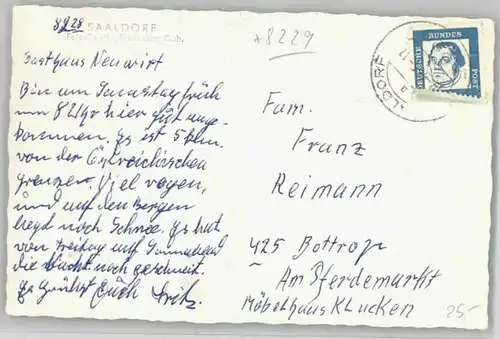 8229 SAALDORF
* 8229
DEUTSCHE BUNDES POST
Gasthaus Neuwirt
Bin am Samstag früh
um 8 Uhr hier gut ange-
kommen. Es ist 5 klm.
von der Östreichischen
grenzen. Viel regen,
und auf den Bergen
liegt noch Schnee. Es hat
von Freitag auf Sonnabend
die Nacht noch geschneit.
Es grüßst Euch Fritz.
Fam.
Franz
Reimann
425 Bottrop
Am Pferdemarkt
Möbelhaus Klucken
25-